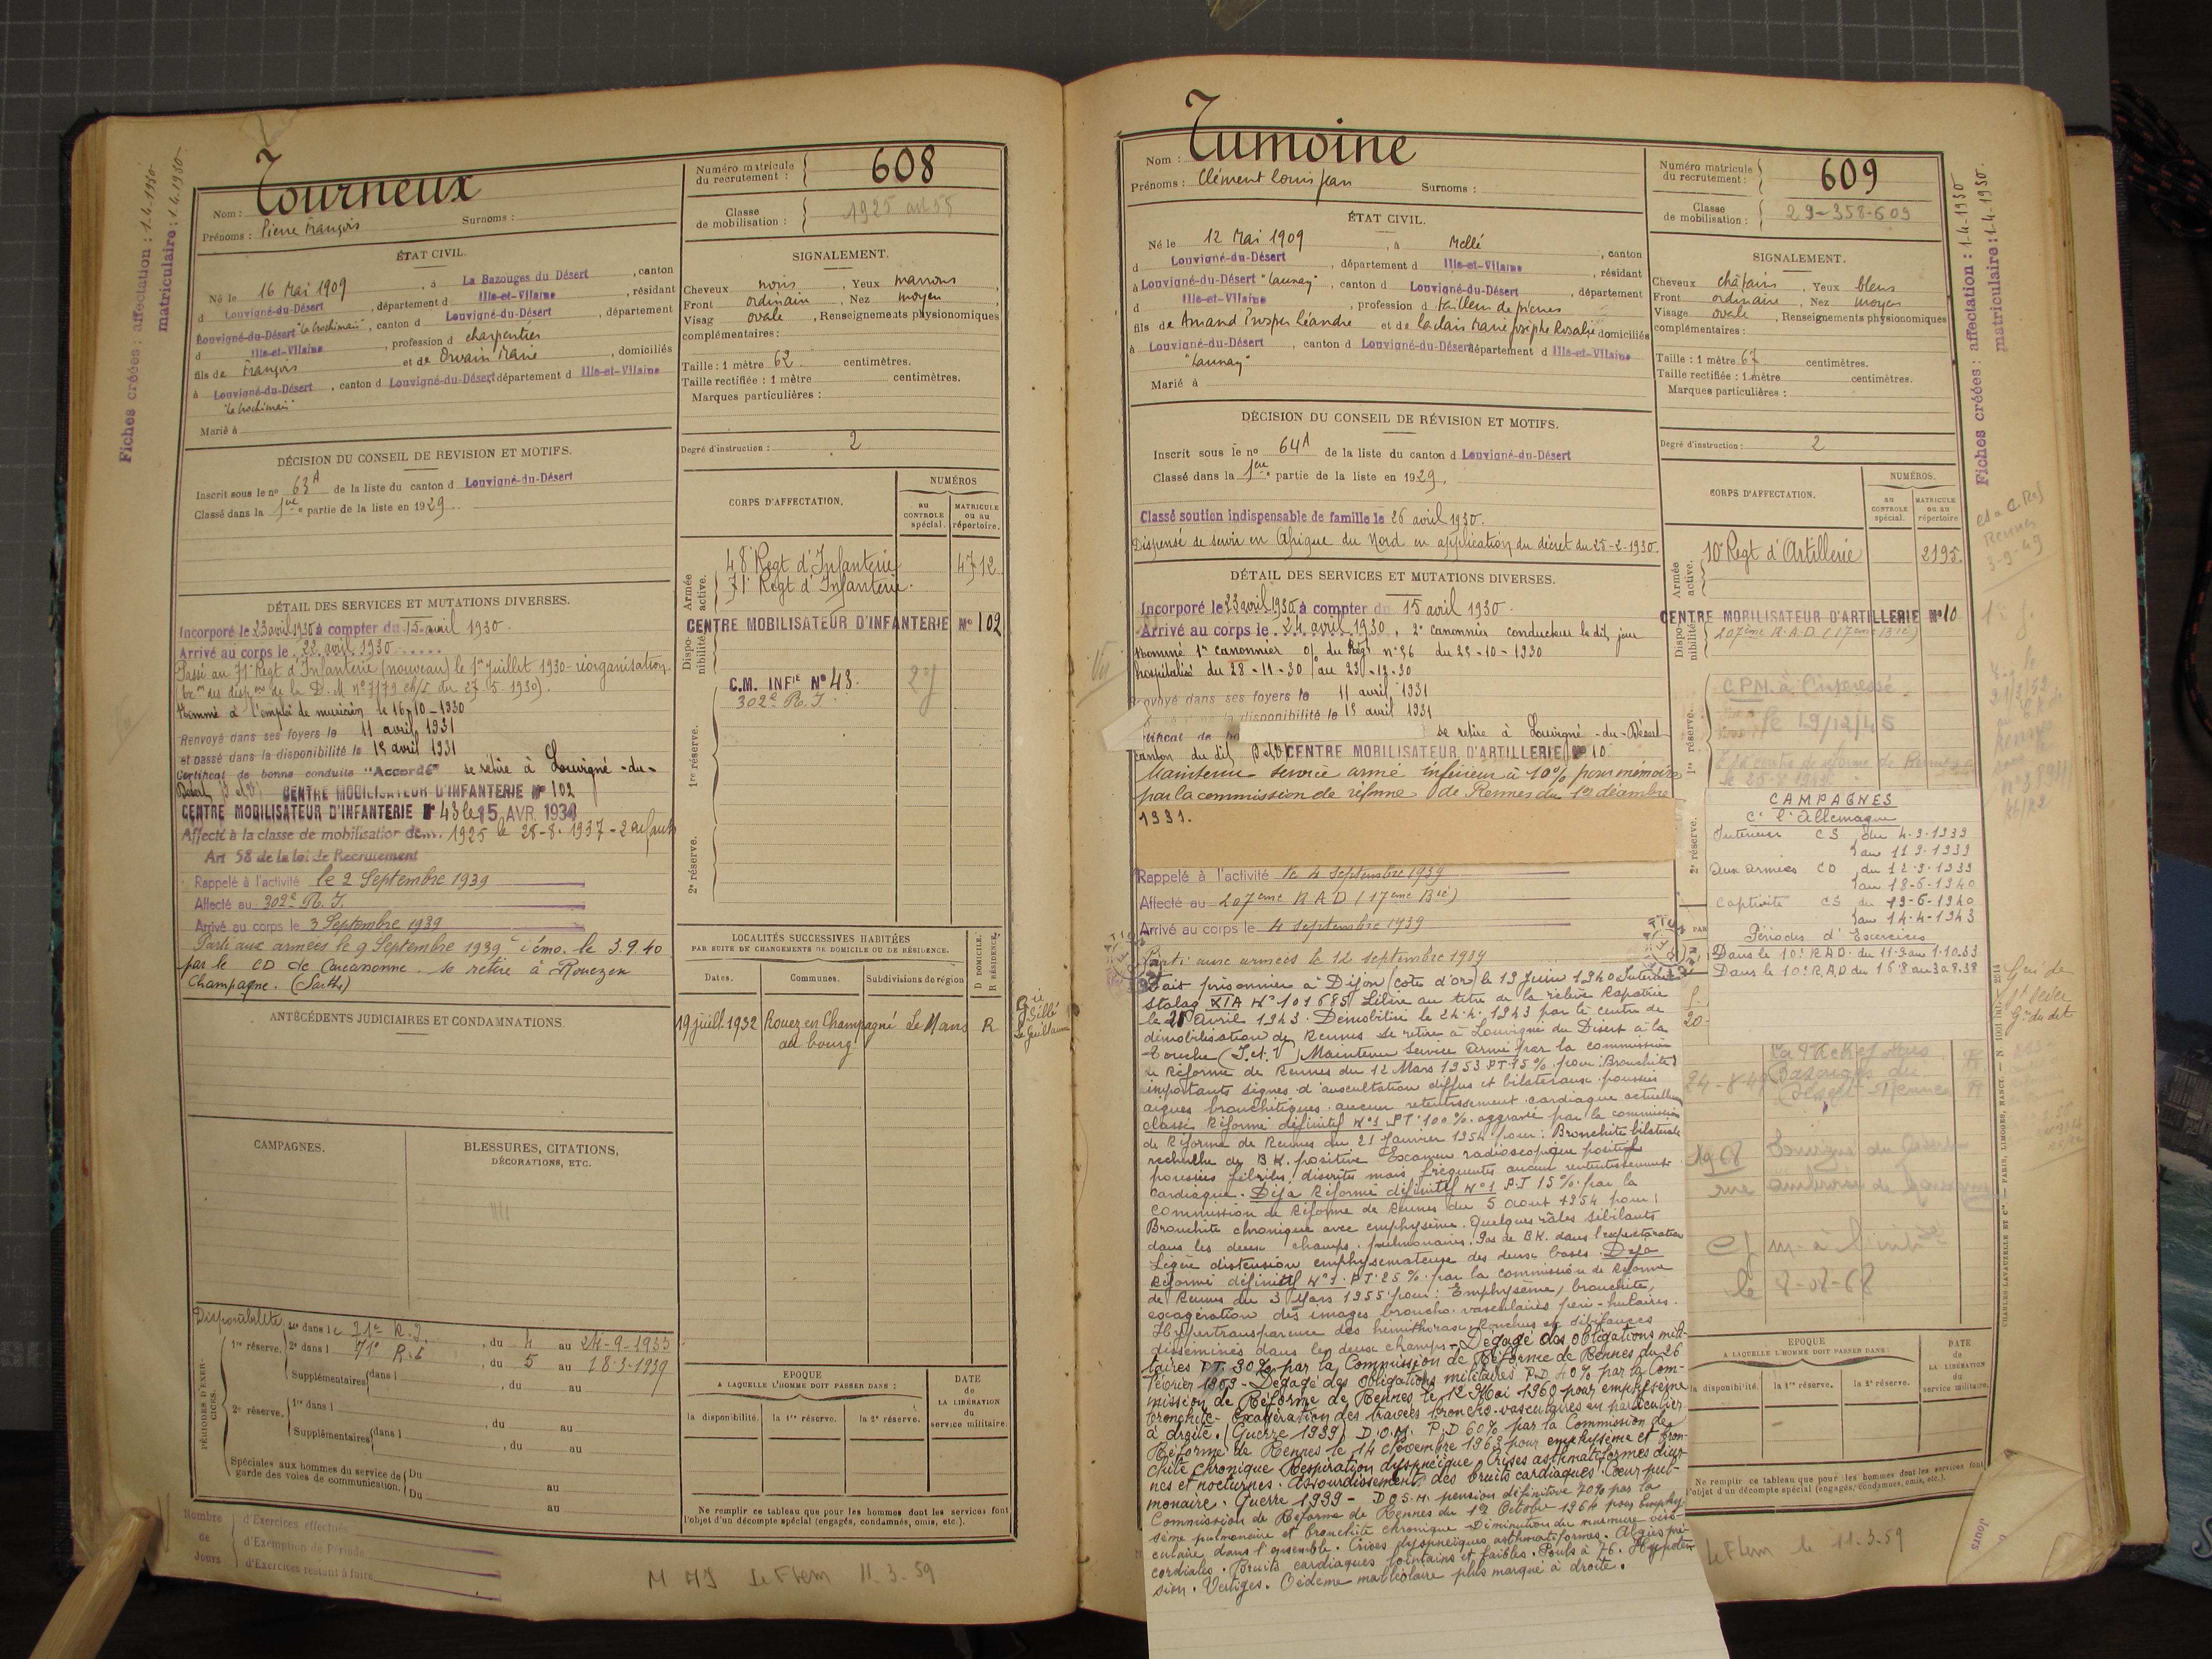 Fiches créées : affectation : 1-4-1930
matriculaire : 1-4-1930
Nom : Tourneux
Prénoms : Pierre François Surnoms :
Numéro matricule du recrutement : 608
Classe de mobilisation : 1925 art 58
ÉTAT CIVIL.
Né le 16 Mai 1909, à La Bazouges du Désert, canton
d Louvigné-du-Désert, département d Ille-et-Vilaine, résidant
Louvigné-du-Désert, canton d Louvigné-du-Désert, département
d Ille-et-Vilaine, profession d charpentier
fils de François et de Orvain Marie, domiciliés
à Louvigné-du-Désert, canton d Louvigné-du-Désert département d Ille-et-Vilaine
Marié à
SIGNALEMENT.
Cheveux noirs, Yeux marrons,
Front ordinaire, Nez moyen,
Visag ovale, Renseignements physionomiques
complémentaires :
Taille : 1 mètre 62 centimètres.
Taille rectifiée : 1 mètre centimètres.
Marques particulières :
Degré d'instruction : 2
DÉCISION DU CONSEIL DE REVISION ET MOTIFS.
Inscrit sous le nº 63A de la liste du canton d Louvigné-du-Désert
Classé dans la 1ère partie de la liste en 1929.
CORPS D'AFFECTATION.
NUMÉROS
AU CONTROLE spécial.
MATRICULE ou au répertoire.
Armée active.
48e Regt d'Infanterie 4712
71e Regt d'Infanterie.
Disponibilité
CENTRE MOBILISATEUR D'INFANTERIE Nº 102
C.M. INFIE Nº 43.
302e R.I.
1re réserve.
2e réserve.
DÉTAIL DES SERVICES ET MUTATIONS DIVERSES.
Incorporé le 23 avril 1930 à compter du 15 avril 1930.
Arrivé au corps le 22 avril 1930
Passé au 71e Regt d'Infanterie (nouveau) le 1er Juillet 1930 - réorganisation.
Nommé à l'emploi de musicien le 16-10-1930
Renvoyé dans ses foyers le 11 avril 1931
et passé dans la disponibilité le 15 avril 1931
Certificat de bonne conduite "Accordé" se retire à Louvigné-du-
Désert CENTRE MOBILISATEUR D'INFANTERIE Nº 102
CENTRE MOBILISATEUR D'INFANTERIE Nº 43 le 15 AVR. 1934
Affecté à la classe de mobilisation de 1925 le 28-8-1937 - 2 enfants
Art 58 de la loi de Recrutement
Rappelé à l'activité le 2 Septembre 1939
Affecté au 302e R.I.
Arrivé au corps le 3 Septembre 1939
Parti aux armées le 9 Septembre 1939 démo. le 3.9.40
par le CD de Carcassonne. se retire à Rouez en
Champagne. (Sarthe)
ANTÉCÉDENTS JUDICIAIRES ET CONDAMNATIONS.
LOCALITÉS SUCCESSIVES HABITÉES
PAR SUITE DE CHANGEMENTS DE DOMICILE OU DE RÉSIDENCE.
Dates. Communes. Subdivisions de région D DOMICILE. R RÉSIDENCE.
19 juill. 1932 Rouez en Champagne Le Mans R
au bourg
CAMPAGNES.
BLESSURES, CITATIONS,
DÉCORATIONS, ETC.
Disponibilité
PÉRIODES D'EXERCICES.
1re réserve. 1re dans le 71e R.I., du 4 au 24-9-1933
2e dans l 71e R.I., du 5 au 18-3-1939
Supplémentaires dans l, du au
2e réserve. 1re dans l, du au
Supplémentaires dans l, du au
Spéciales aux hommes du service de garde des voies de communication. Du au
Du au
EPOQUE
A LAQUELLE L'HOMME DOIT PASSER DANS :
la disponibilité. la 1re réserve. la 2e réserve.
DATE de LA LIBÉRATION du service militaire.
Ne remplir ce tableau que pour les hommes dont les services font
l'objet d'un décompte spécial (engagés, condamnés, omis, etc.).
Nombre de Jours
d'Exercices effectués
d'Exemption de Période
d'Exercices restant à faire
Le Flem 11.3.59
Nom : Tumoine
Prénoms : Clément Louis Jean Surnoms :
Numéro matricule du recrutement : 609
Classe de mobilisation : 29-358-609
ÉTAT CIVIL.
Né le 12 Mai 1909, à Mellé, canton
d Louvigné-du-Désert, département d Ille-et-Vilaine, résidant
à Louvigné-du-Désert "Launay", canton d Louvigné-du-Désert, département
d Ille-et-Vilaine, profession d tailleur de pierres
fils de Amand Prosper Léandre et de Leclair Marie Josèphe Rosalie domiciliés
à Louvigné-du-Désert, canton d Louvigné-du-Désert département d Ille-et-Vilaine
"Launay"
Marié à
SIGNALEMENT.
Cheveux châtains, Yeux bleus
Front ordinaire, Nez moyen
Visage ovale, Renseignements physionomiques
complémentaires :
Taille : 1 mètre 67 centimètres.
Taille rectifiée : 1 mètre centimètres.
Marques particulières :
Degré d'instruction : 2
Fiches créées : affectation : 1-4-1930
matriculaire : 1-4-1930
DÉCISION DU CONSEIL DE RÉVISION ET MOTIFS.
Inscrit sous le nº 64A de la liste du canton d Louvigné-du-Désert
Classé dans la 1ère partie de la liste en 1929.
Classé soutien indispensable de famille le 26 avril 1930.
Dispensé de servir en Afrique du Nord en application du décret du 25-2-1930.
CORPS D'AFFECTATION.
NUMÉROS.
AU CONTROLE spécial.
MATRICULE ou au répertoire
Armée active.
10e Regt d'Artillerie 2195.
Disponibilité
CENTRE MOBILISATEUR D'ARTILLERIE Nº 10
207ème R.A.D (17ème Bie)
1re réserve.
C.P.M. à l'intéressé.
le 19/12/45
2e réserve.
DÉTAIL DES SERVICES ET MUTATIONS DIVERSES.
Incorporé le 23 avril 1930 à compter du 15 avril 1930.
Arrivé au corps le 24 avril 1930, 2e canonnier conducteur le dit jour
Nommé 1er canonnier o/ du Régt nº 86 du 28-10-1930
hospitalisé du 28-11-30 au 23-12-30
envoyé dans ses foyers le 11 avril 1931
la disponibilité le 15 avril 1931
se retire à Louvigné-du-Désert
canton du dit CENTRE MOBILISATEUR D'ARTILLERIE Nº 10
Maintenu service armé inférieur à 10% pour mémoire
par la commission de réforme de Rennes du 12 décembre
1931.
Rappelé à l'activité le 4 septembre 1939
Affecté au 207ème R A D (17ème Bie)
Arrivé au corps le 4 septembre 1939
Parti aux armées le 12 septembre 1939
Fait prisonnier à Dijon (cote d'or) le 19 Juin 1940 Interné
Stalag XIA Nº 101685 Libéré au titre de la relève Rapatrié
le 21 Avril 1943. Démobilisé le 24.4.1943 par le centre de
démobilisation de Rennes se retire à Louvigné du Désert à la
Touche (I.et.V) Maintenu Service Armé par la commission
de Réforme de Rennes du 12 Mars 1953 PT.15% pour Bronchite
importants signes d'auscultation diffus et bilateraux poussées
aigues bronchitiques. aucun retentissement cardiaque actuellem
classé Réformé définitif Nº1 PT.100% aggravée par la commission
de Réforme de Rennes du 21 Janvier 1954 pour : Bronchite bilaterale
recherche de B.K. positive Examen radioscopique positif
poussées fébriles discrètes mais fréquentes aucun retentissement
cardiaque. Déja Réformé définitif Nº1 P.T 15% par la
commission de Réforme de Rennes du 5 Aout 1954 pour :
Bronchite chronique avec emphysème. Quelques râles sibilants
dans les deux champs pulmonaires. Pas de B.K. dans l'expectoration
Légère distension emphysemateuse des deux bases. Déja
Réformé définitif Nº1. P.T 25% par la commission de Réforme
de Rennes du 3 Mars 1955 pour : Emphysème, bronchite,
exagération des images broncho-vasculaires peri-hilaires.
Hypertransparence des hémithorax Ronchus et sibilances
disseminés dans les deux champs - Dégagé des obligations mili-
taires P.T. 30% par la Commission de Réforme de Rennes du 26
Février - Dégagé des obligations militaires P.D 40% par la Com-
mission de Réforme de Rennes le 12 Mai 1960 pour emphysème
bronchite - Exagération des travées broncho-vasculaires en particulier
à droite. (Guerre 1939) D.O.M. P.D 60% par la Commission de
Réforme de Rennes le 14 Novembre 1963 pour emphysème et bron-
chite chronique Respiration dyspneique Crises asthmatiformes diur-
nes et nocturnes. Assourdissement des bruits cardiaques Cœur pul-
monaire. Guerre 1939 - D.O.M. pension définitive 70% par la
Commission de Réforme de Rennes du 12 Octobre 1964 pour Emphy-
sème pulmonaire et bronchite chronique Diminution du murmure vési-
culaire dans l'ensemble. Crises dyspneiques asthmatiformes. Algies pré-
cordiales. Bruits cardiaques lointains et faibles. Pouls à 76. Hypoten-
sion. Vertiges. Oedème malléolaire plus marqué à droite.
CAMPAGNES
Ce l'Allemagne
Interieur CS du 4.9.1939
au 11.9.1939
Aux armées CD du 12.9.1939
au 18-6-1940
Captivité CS du 19-6-1940
au 14-4-1943
Périodes d'Exercices
Dans le 10e R.A.D. du 11-9 au 1-10-33
Dans le 10e R.A.D du 16.8 au 30.8.38
24-8-49 Bazouges du
Désert - Rennes R
1968 Louvigné du Désert
le 8-08-68
EPOQUE
A LAQUELLE L'HOMME DOIT PASSER DANS :
la disponibilité. la 1re réserve. la 2e réserve.
DATE de LA LIBÉRATION du service militaire.
Ne remplir ce tableau que pour les hommes dont les services font
l'objet d'un décompte spécial (engagés, condamnés, omis, etc.).
CHARLES-LAVAUZELLE ET Cie — PARIS, LIMOGES, NANCY.
Le Flem le 11.3.59
Jours